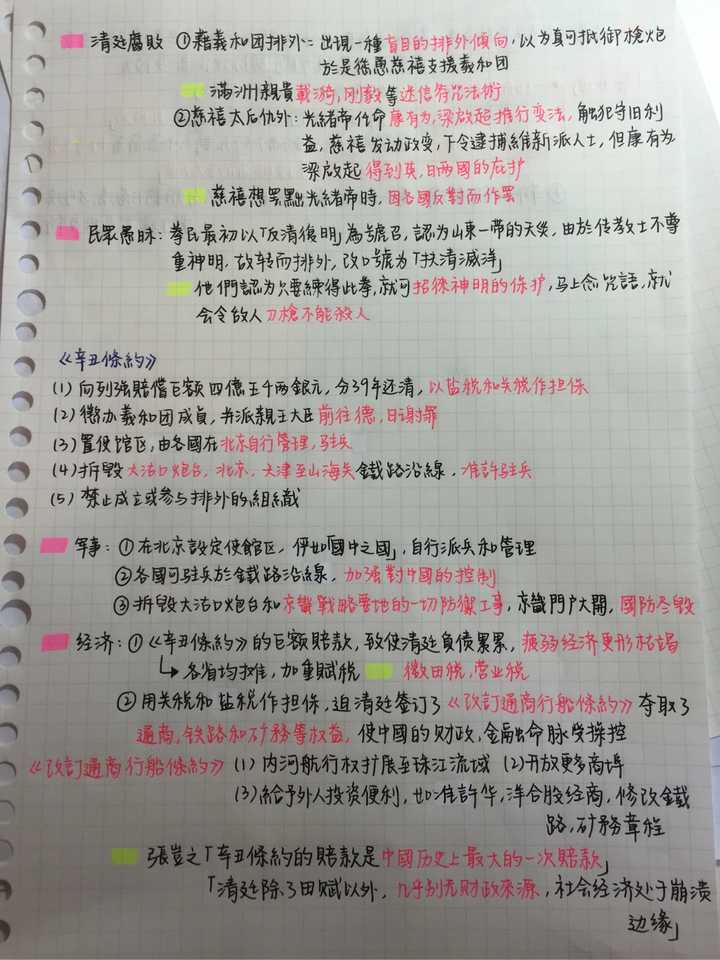 清廷腐敗 ①藉義和团排外：出現一種盲目的排外傾向，以为真可抵御槍炮
於是慫恿慈禧支援義和团
滿洲親貴載漪，刚毅等迷信符咒法術
②慈禧太后仇外：光緒帝任命康有为，梁啟超推行变法，触犯守旧利
益，慈禧发动政变，下令逮捕維新派人士，但康有为
梁啟超得到英，日兩國的庇护
慈禧想罢黜光緒帝時，因各國反對而作罢
民眾愚昧：拳民最初以「反清復明」為號召，認为山東一帶的天災，由於传教士不尊
重神明，故转而排外，改口號为「扶清滅洋」
他們認为只要練得此拳，就可招徠神明的保护，马上念咒語，就
会令敌人刀槍不能殺人
《辛丑條約》
(1) 向列强賠償巨額四億五千兩銀元，分39年还清，以盐税和关税作担保
(2) 懲办義和团成員，并派親王大臣前往德，日谢罪
(3) 置使馆区，由各國在北京自行管理，驻兵
(4) 拆毀大沽口炮台，北京，天津至山海关鐵路沿線，准許驻兵
(5) 禁止成立或参与排外的組織
军事：①在北京設定使館区，伊如「國中之國」，自行派兵和管理
②各國可驻兵於鐵路沿線，加强對中國的控制
③拆毀大沽口炮台和京畿戰略要地的一切防禦工事，京畿門户大開，國防尽毁
经济：①《辛丑條約》的巨額賠款，致使清廷負債累累，疲弱经济更形枯竭
↳各省均摊，加重賦稅 徵田税，营业税
②用关税和盐税作担保，迫清廷签订了《改訂通商行船條約》夺取了
通商，铁路和矿務等权益，使中國的财政，金融命脉受操控
《改訂通商行船條約》(1) 内河航行权扩展至珠江流域 (2)开放更多商埠
(3)給予外人投资便利，如准許华，洋合股经商，修改鐵
路，矿務章程
張豈之「辛丑條約的賠款是中國历史上最大的一次賠款」
「清廷除了田赋以外，几乎别无财政來源，社会经济处于崩溃
边缘」